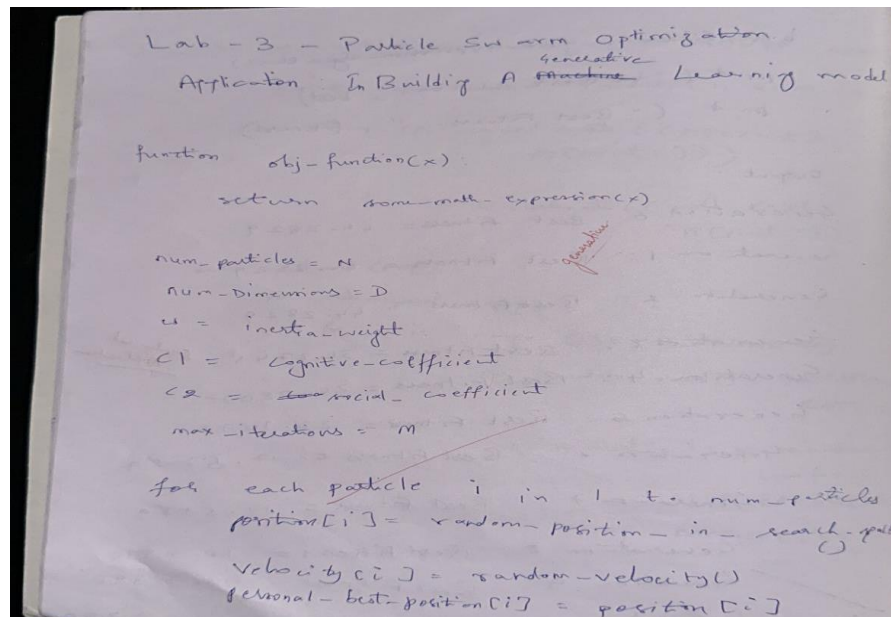 Lab - 3 - Particle Swarm Optimization
Generative
Application In Building A Machine Learning model
function obj-function(x):
return some-math-expression(x)
generative
num_particles = N
num-Dimensions = D
w = inertia-weight
C1 = cognitive-coefficient
C2 = social_coefficient
max_iterations = M
for each particle i in 1 to num_particles
position[i] = random-position-in-search-
()
velocity[i] = random-velocity()
personal-best-position[i] = position[i]